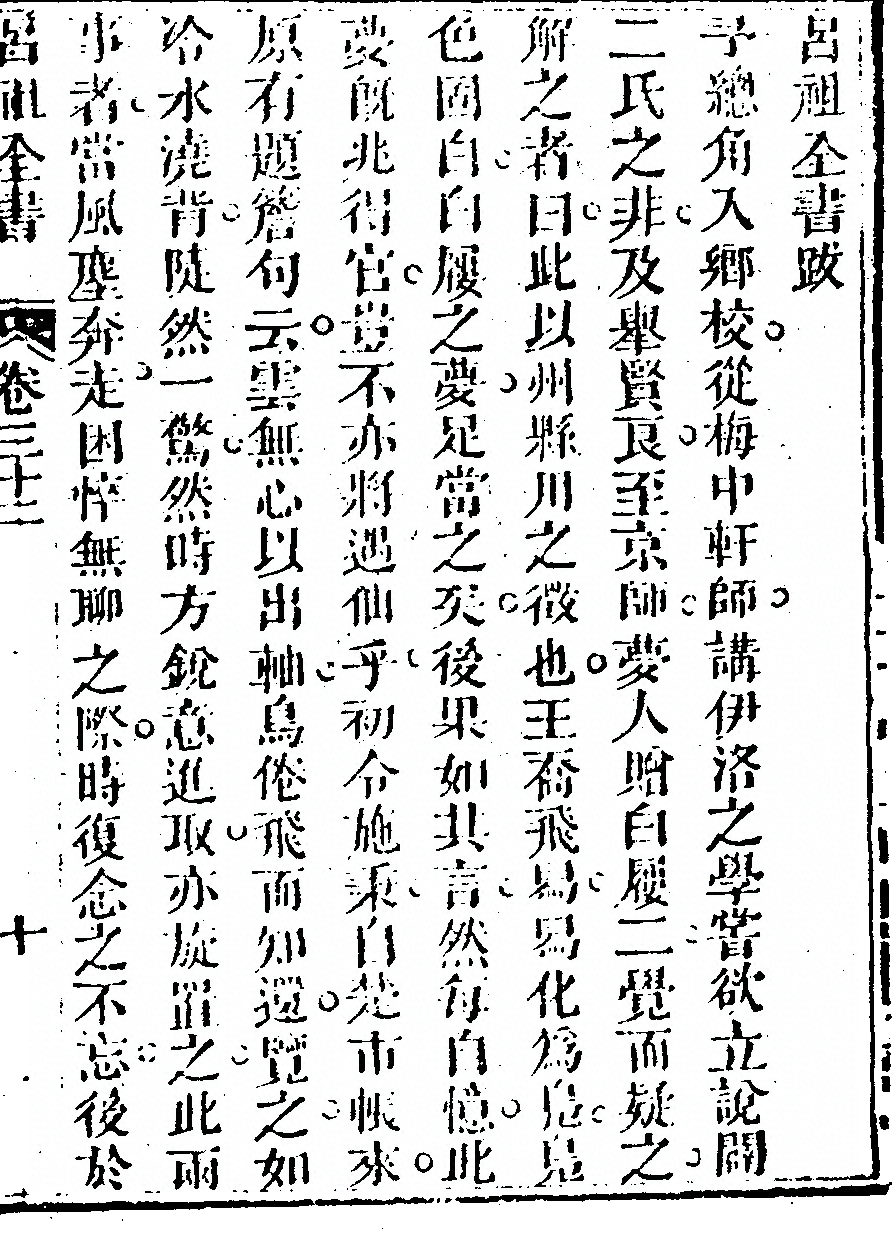 呂祖全書跋
予總角入鄉校從梅中軒師講伊洛之學嘗欲立說闢
二氏之非及舉賢良至京師夢人贈白履二覺而疑之
解之者曰此以州縣用之徵也王喬飛舄舄化為鳧鳧
色固白白履之夢足當之矣後果如其言然每自憶此
夢既兆得官豈不亦將遇仙乎初令施秉自楚市帳來
原有題簷句云雲無心以出軸鳥倦飛而知還覽之如
冷水澆背陡然一驚然時方銳意進取亦旋置之此兩
事者當風塵奔走困悴無聊之際時復念之不忘後於
呂祖全書 卷三十二 十